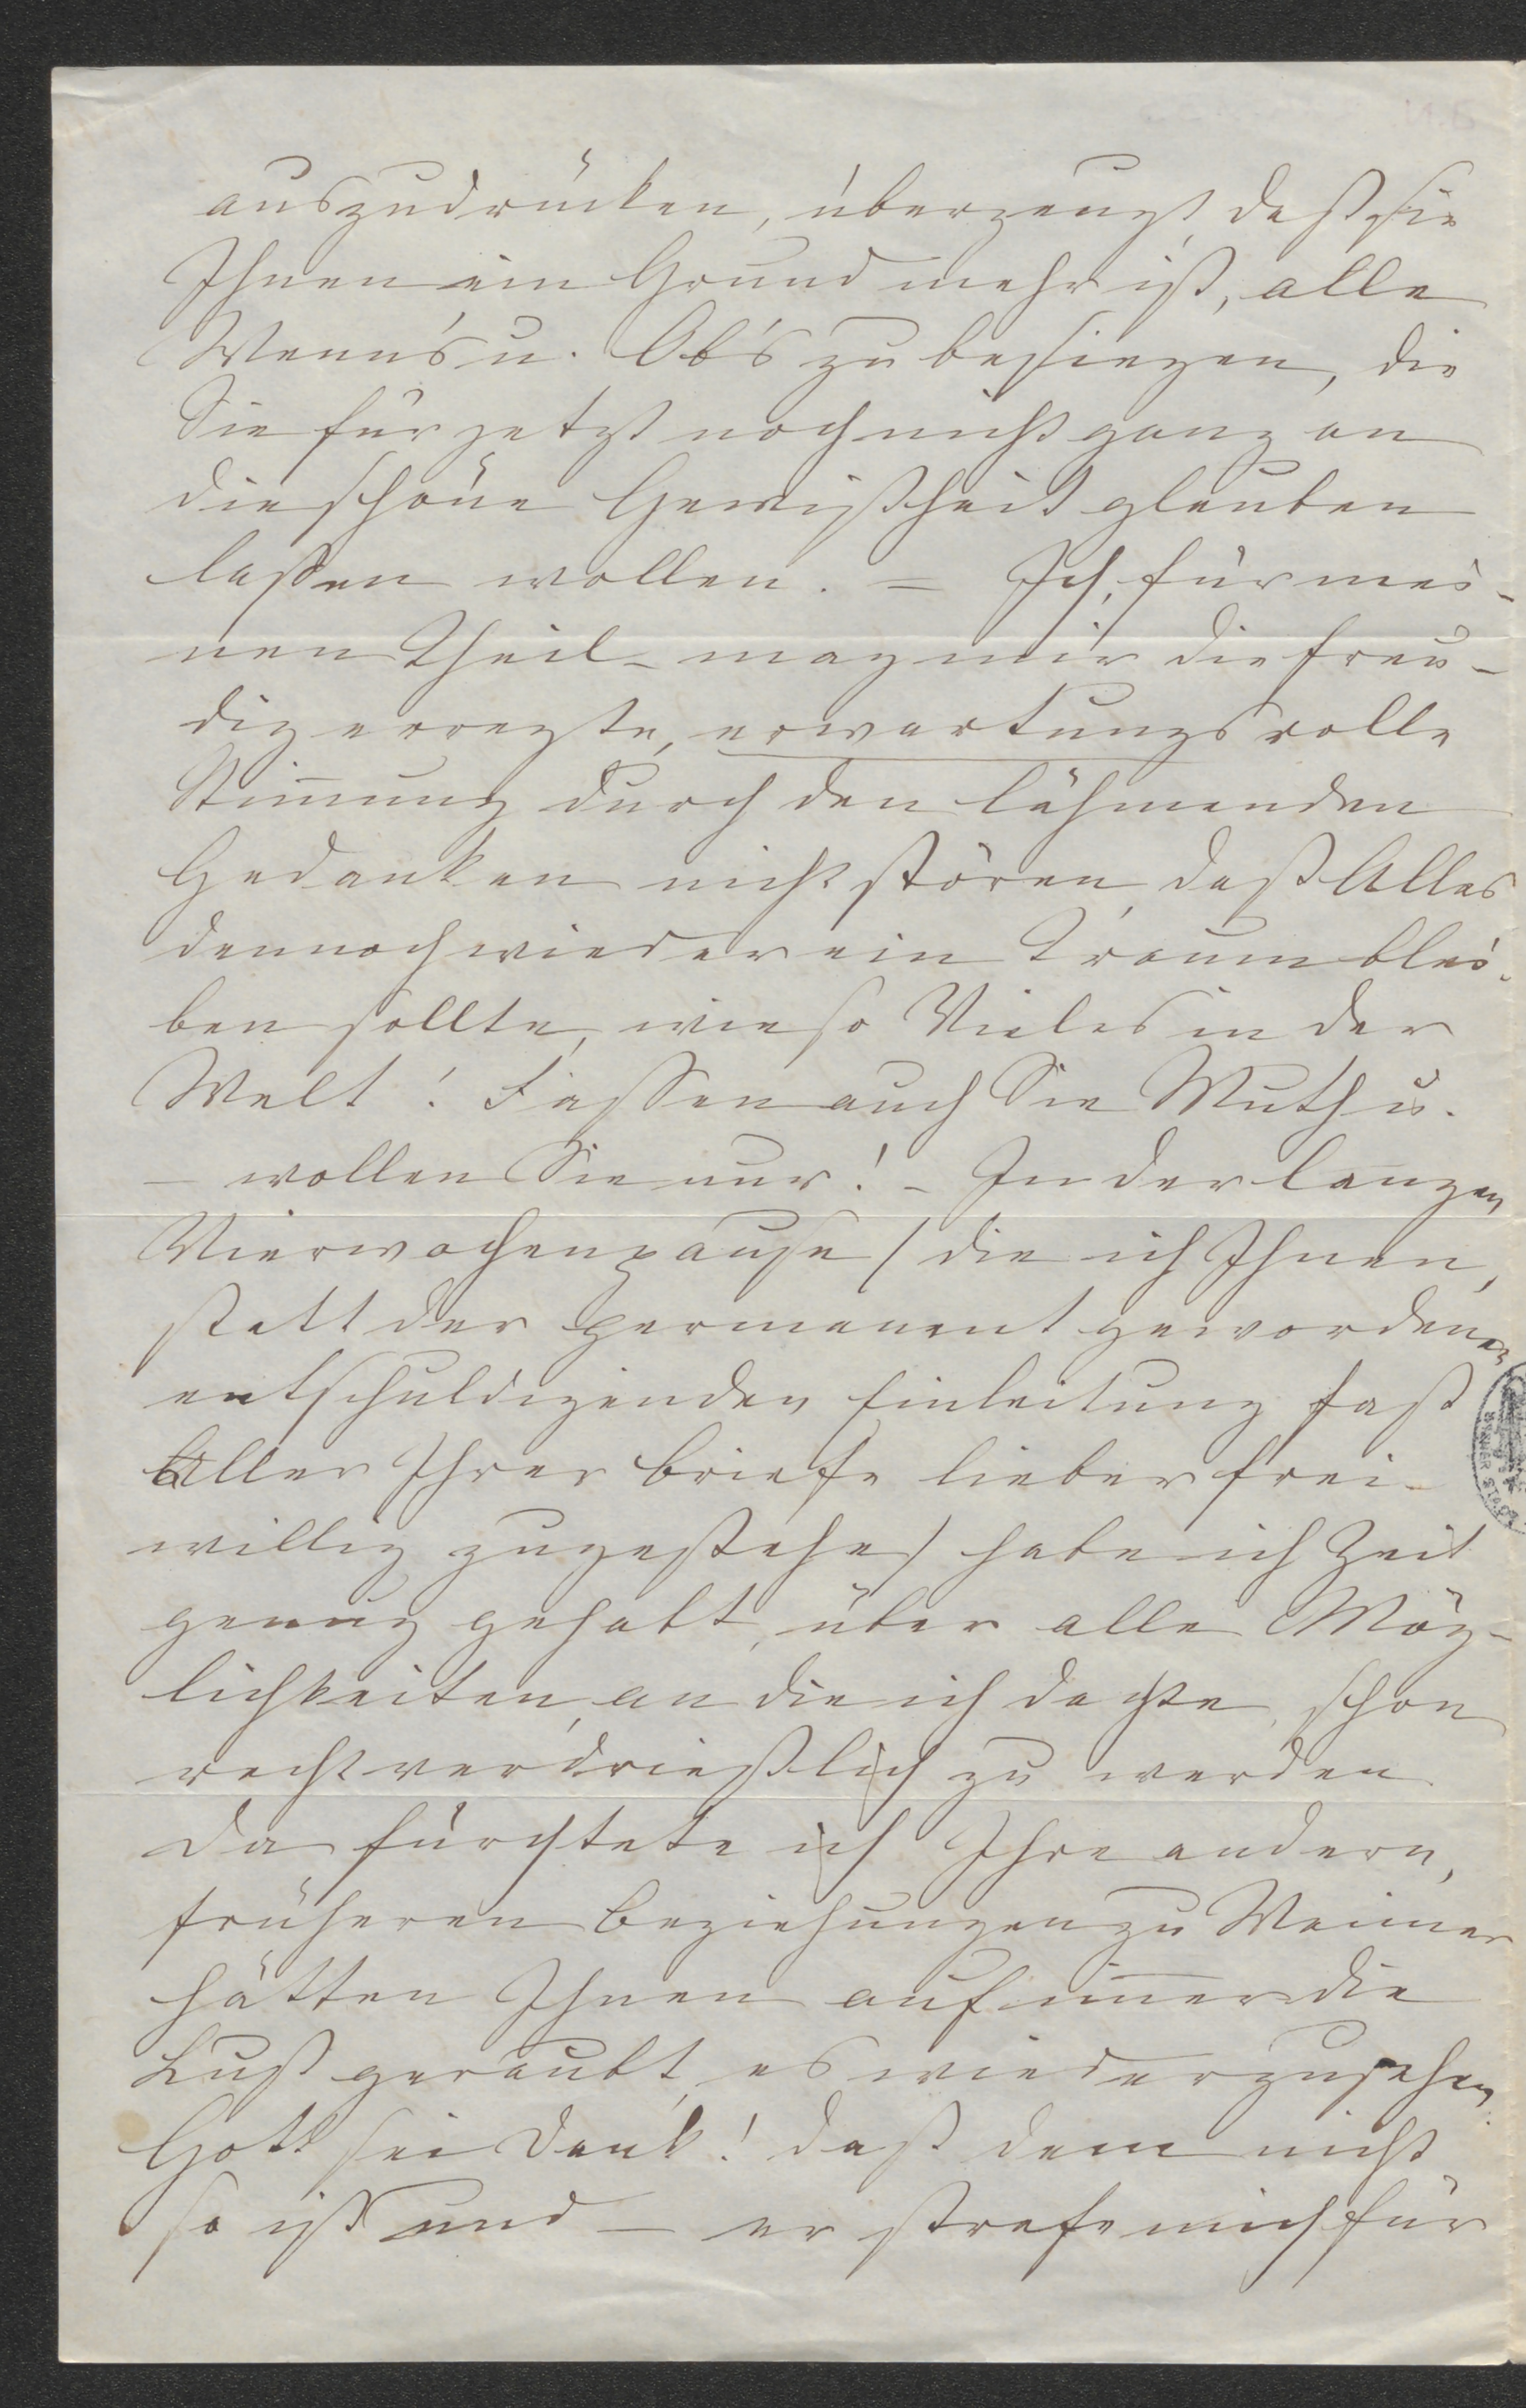 auszudrücken, überzeugt, daß sie
Ihnen ein Grund mehr ist, alle
Wenn's u. Ob's zu besiegen, die
Sie für jetzt noch nicht ganz an
die schöne Gewißheit glauben
lassen wollen. – Ich, für mei-
nen Theil – mag mir die freu-
dig erregte, erwartungsvolle
Stim̅ung durch den lähmenden
Gedanken nicht stören, daß Alles
dennoch wieder ein Traum blei-
ben sollte, wie so Vieles in der
Welt! Fassen auch Sie Muth u.
– wollen Sie nur! – In der langen
Vierwochenpause / die ich Ihnen,
statt der permanent gewordenen
entschuldigenden Einleitung fast
Aller Ihrer Briefe lieber frei-
willig zugestehe / habe ich Zeit
genug gehabt, über alle Mög-
lichkeiten, an die ich dachte, schon
recht verdrießlich zu werden
Da fürchtete ich Ihre andern,
früheren Beziehungen zu Weimar
hätten Ihnen auf im̅er die
Lust geraubt, es wiederzusehen
Gott sei Dank! daß dem nicht
so ist und – er strafe mich für